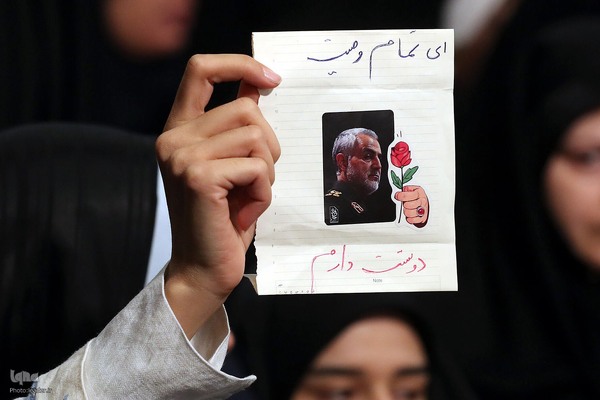 ای تمام وصیت
دوستت دارم
Note